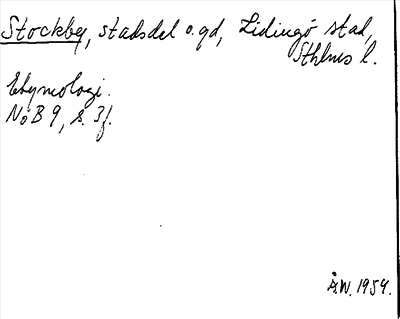 Stockby, stadsdel o. gd, Lidingö stad,
Sthlms l.
Etymologi.
NoB 9, s. 3f.
Å.W. 1954.